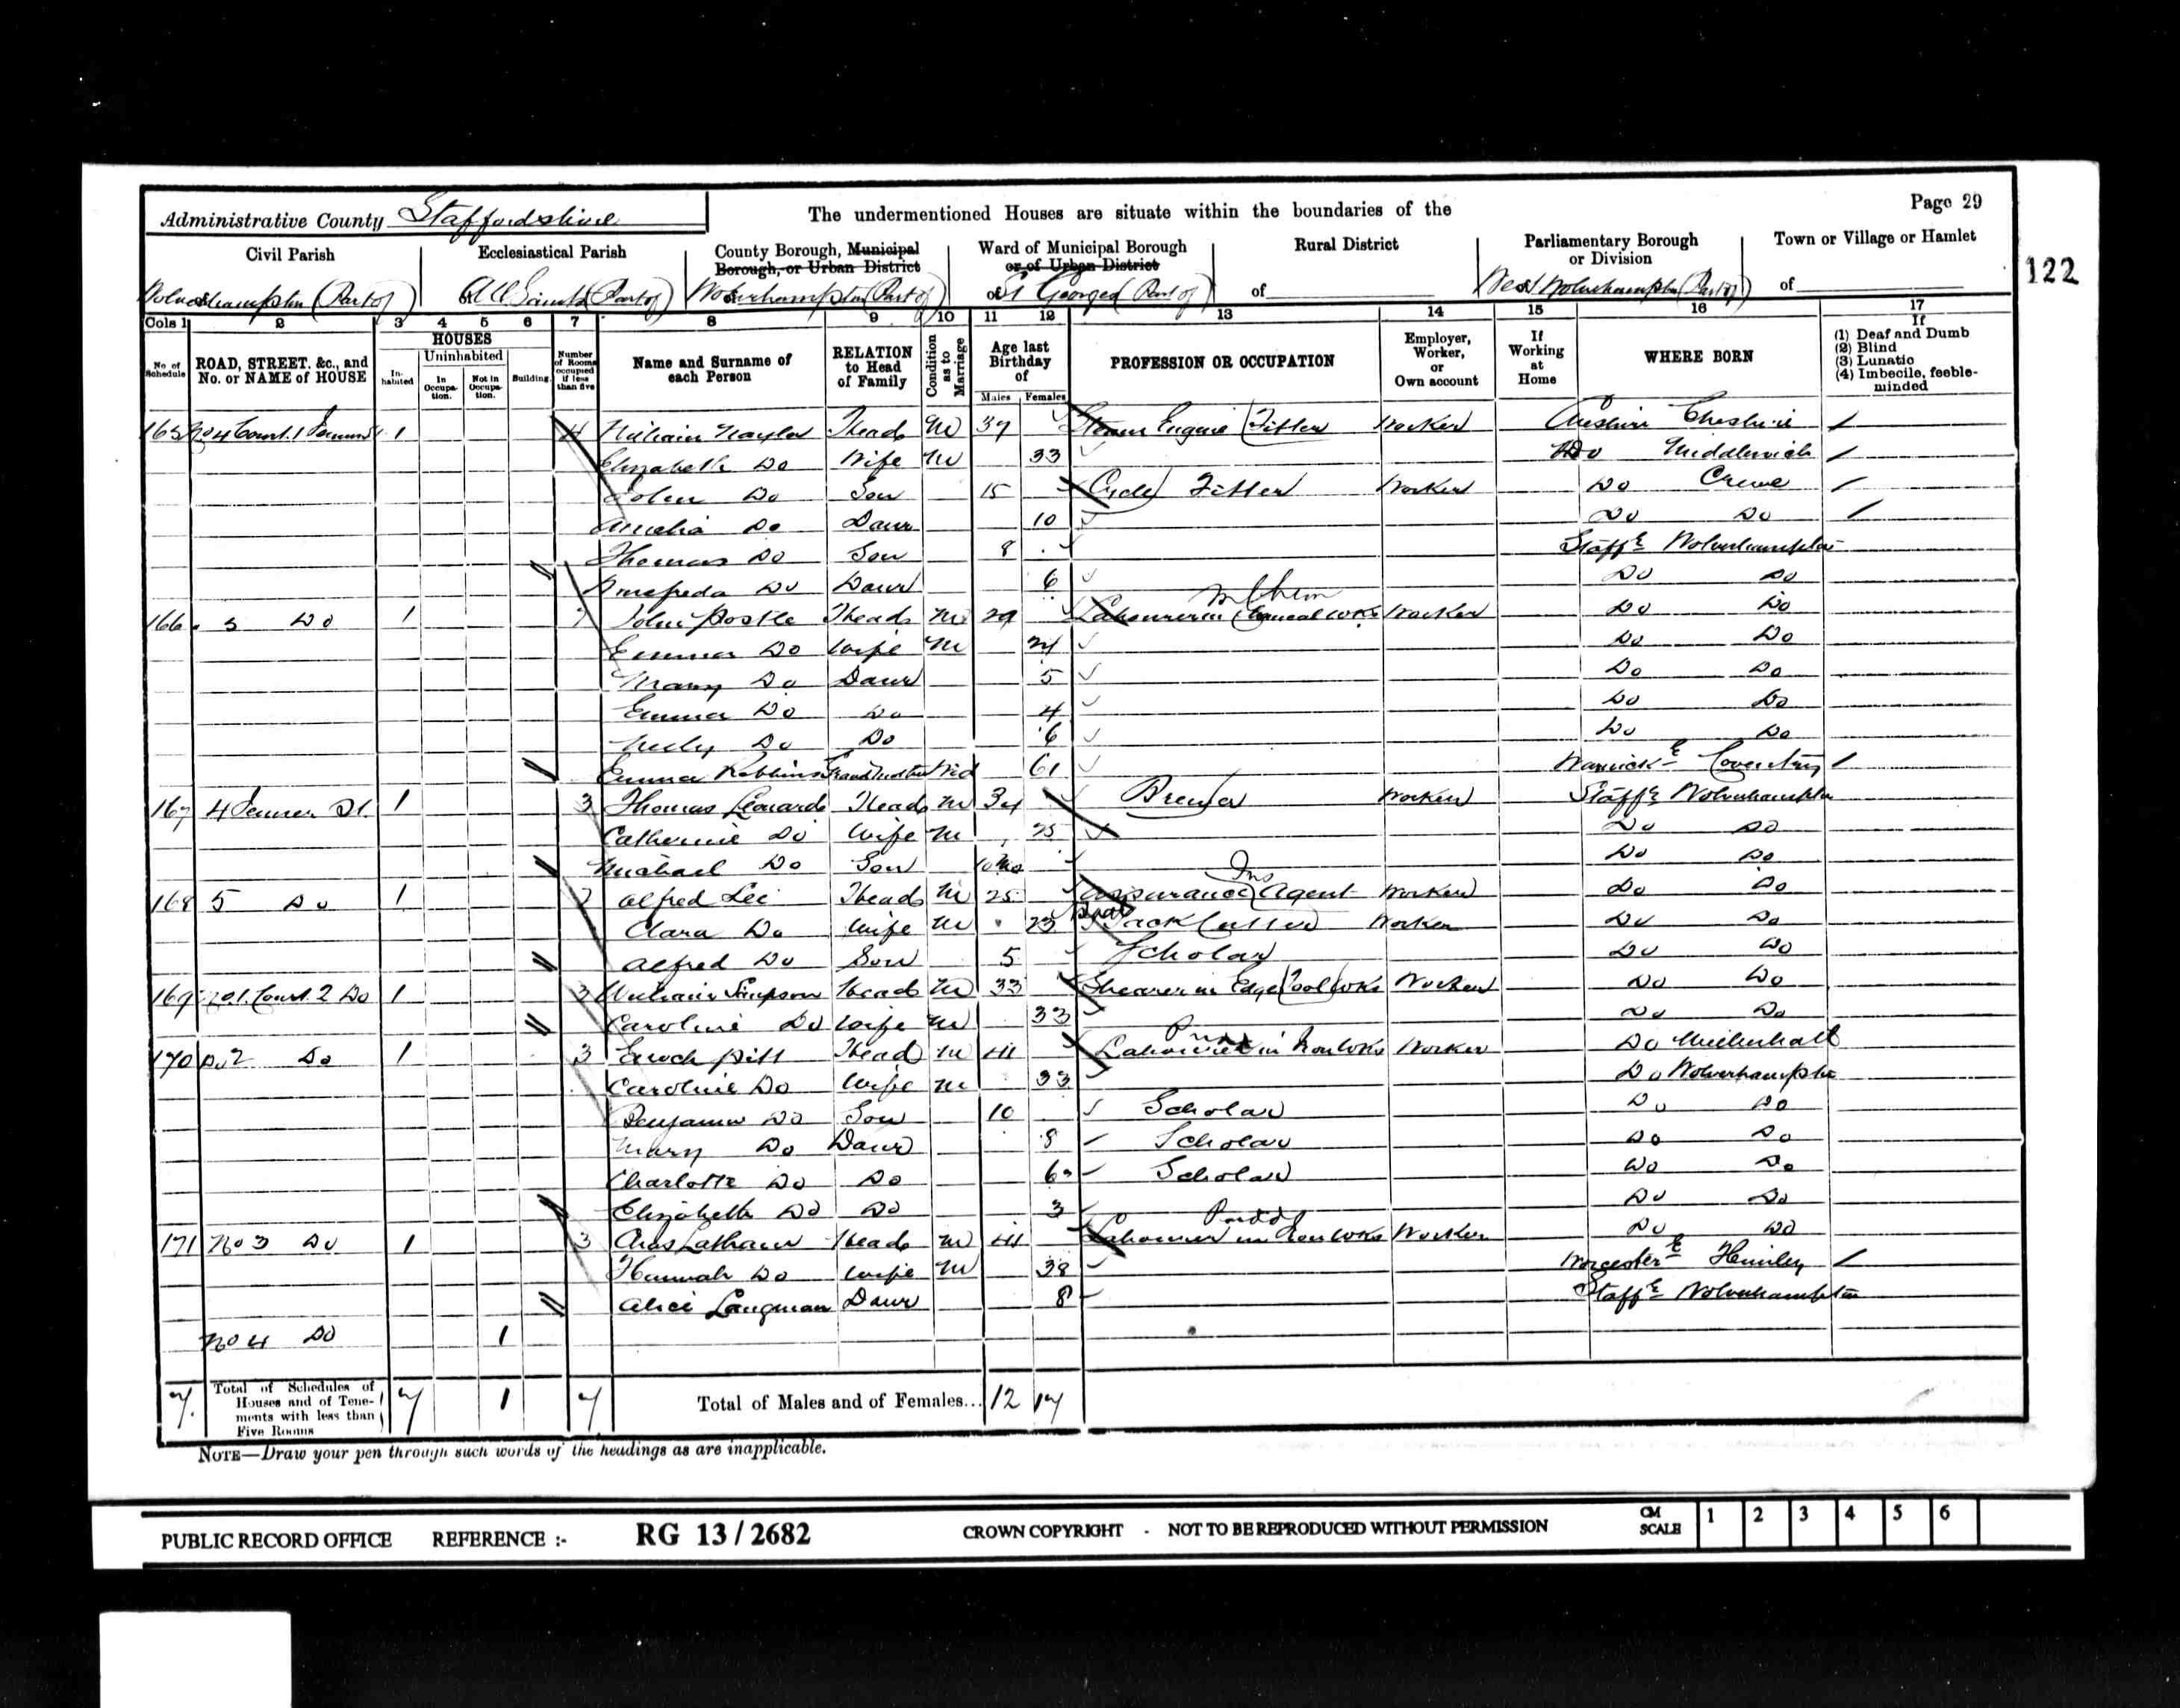 Administrative County Staffordshire
The undermentioned Houses are situate within the boundaries of the
Page 29
Civil Parish
Ecclesiastical Parish
County Borough, Municipal Borough, or Urban District
Ward of Municipal Borough or of Urban District
Rural District
Parliamentary Borough or Division
Town or Village or Hamlet
Wolverhampton (Part of)
All Saints (Part of)
Wolverhampton (Part of)
of St Georges (Part of)
of
West Wolverhampton (Part of)
of
122
Cols 1 2 3 4 5 6 7 8 9 10 11 12 13 14 15 16 17
No of Schedule
ROAD, STREET, &c., and No. or NAME of HOUSE
HOUSES
In-habited
Uninhabited
In Occupa-tion.
Not in Occupa-tion.
Building
Number of Rooms occupied if less than five
Name and Surname of each Person
RELATION to Head of Family
Condition as to Marriage
Age last Birthday of
Males Females
PROFESSION OR OCCUPATION
Employer, Worker, or Own account
If Working at Home
WHERE BORN
If
(1) Deaf and Dumb
(2) Blind
(3) Lunatic
(4) Imbecile, feeble-minded
165 No 4 Court 1 1 4 William Naylor Head M 37 Engine Fitter Worker Cheshire
Elizabeth Do Wife M 33 Do Middlewich
John Do Son 15 Cycle Fitter Worker Do Crewe
Amelia Do Daur 10 Do Do
Thomas Do Son 8 Staffs Wolverhampton
Do Daur 6 Do Do
166 5 Do 1 John Postle Head M 29 Labourer in Chemical Wks Worker Do Do
Emma Do Wife M 24 Do Do
Mary Do Daur 5 Do Do
Emma Do Do 4 Do Do
Do Do 6 Do Do
Emma Robbins Wid 61 Warwicks Coventry
167 4 St. 1 3 Thomas Leonard Head M 34 Brewer Worker Staffs Wolverhampton
Catherine Do Wife M 25 Do Do
Michael Do Son 10 Mo Do Do
168 5 Do 1 Alfred Lee Head M 25 Ins Assurance Agent Worker Do Do
Clara Do Wife M 23 Worker Do Do
Alfred Do Son 5 Scholar Do Do
169 No 1 Court 2 Do 1 3 William Simpson Head M 33 Shearer in Edge Tool Wks Worker Do Do
Caroline Do Wife M 33 Do Do
170 Do 2 Do 1 3 Enoch Pitt Head M 41 Labourer in Iron Wks Worker Do Willenhall
Caroline Do Wife M 33 Do Wolverhampton
Benjamin Do Son 10 Scholar Do Do
Mary Do Daur 8 Scholar Do Do
Charlotte Do Do 6 Scholar Do Do
Elizabeth Do Do 3 Do Do
171 No 3 Do 1 3 Chas Latham Head M 41 Pudd Labourer in Iron Wks Worker Do Do
Hannah Do Wife M 38 Worcesters Himley
Alice Langman Daur 8 Staffs Wolverhampton
No 4 Do 1
7 Total of Schedules of Houses and of Tene-ments with less than Five Rooms 7 1 7 Total of Males and of Females... 12 17
NOTE—Draw your pen through such words of the headings as are inapplicable.
PUBLIC RECORD OFFICE REFERENCE :- RG 13 / 2682 CROWN COPYRIGHT - NOT TO BE REPRODUCED WITHOUT PERMISSION CM SCALE 1 2 3 4 5 6